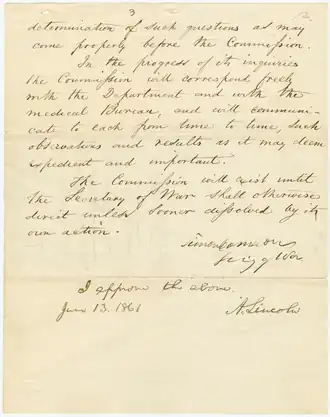 3
determination of such questions as may
come properly before the Commission.
In the progress of its inquiries
the Commission will correspond freely
with the Department and with the
medical Bureau, and will communi-
cate to each from time to time, such
observations and results as it may deem
expedient and important.
The Commission will exist until
the Secretary of War shall otherwise
direct unless sooner dissolved by its
own action.
Simon Cameron
Secy of War
I approve the above.
A. Lincoln
June 13. 1861